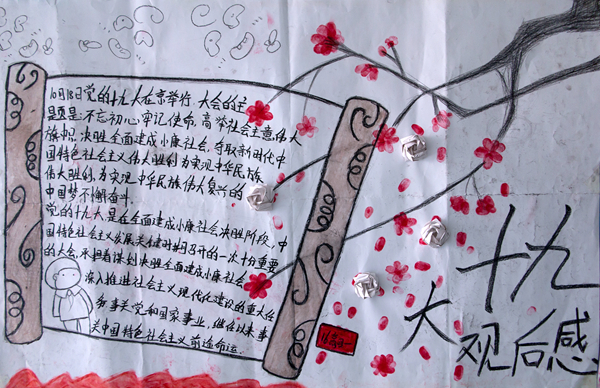 10月18日党的十九大在京举行.大会的主
题是:不忘初心牢记使命,高举社会主意伟大
旗帜.决胜全面建成小康社会.夺取新时代中
国特色社会主义伟大胜利,为实现中华民族
伟大胜利,为实现中华民族伟大复兴的
中国梦不懈奋斗.
党的十九大是在全面建成小康社会决胜阶段,中
国特色社会主义发展关键时期召开的一次十分重要
的大会.承担着谋划决胜全面建成小康社会
深入推进社会主义现代化建设的重大任
务事关党和国家事业,继往
关中国特色社会主义前途命运.
十九
大
观后感